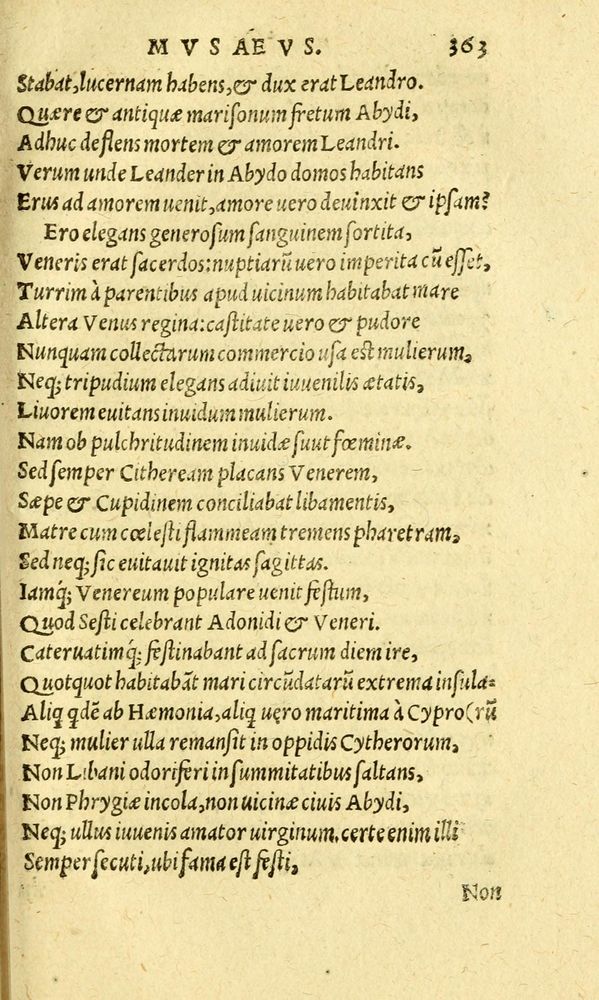 MVSAEVS. 363
Stabat, lucernam habens, & dux erat Leandro.
Quære & antiquæ mariſonum fretum Abydi,
Adhuc deflens mortem & amorem Leandri.
Verum unde Leander in Abydo domos habitans
Erus ad amorem uenit, amore uero deuinxit & ipſam?
Ero elegans generoſum ſanguinem ſortita,
Veneris erat ſacerdos: nuptiarũ uero imperita cũ eſſet,
Turrim à parentibus apud uicinum habitabat mare
Altera Venus regina: caſtitate uero & pudore
Nunquam collectarum commercio uſa eſt mulierum,
Neq; tripudium elegans adiuit iuuenilis ætatis,
Liuorem euitans inuidum mulierum.
Nam ob pulchritudinem inuidæ ſuut fœminæ.
Sed ſemper Citheream placans Venerem,
Sæpe & Cupidinem conciliabat libamentis,
Matre cum cœleſti flammeam tremens pharetram,
Sed neq; ſic euitauit ignitas ſagittas.
Iamq́; Venereum populare uenit feſtum,
Quod Seſti celebrant Adonidi & Veneri.
Cateruatimq́; feſtinabant ad ſacrum diem ire,
Quotquot habitabãt mari circũdatarũ extrema inſula=
Aliq qdẽ ab Hæmonia, aliq uero maritima à Cypro (rũ
Neq; mulier ulla remanſit in oppidis Cytherorum,
Non Libani odoriferi in ſummitatibus ſaltans,
Non Phrygiæ incola, non uicinæ ciuis Abydi,
Neq; ullus iuuenis amator uirginum. certe enim illi
Semper ſecuti, ubi fama eſt feſti,
Non